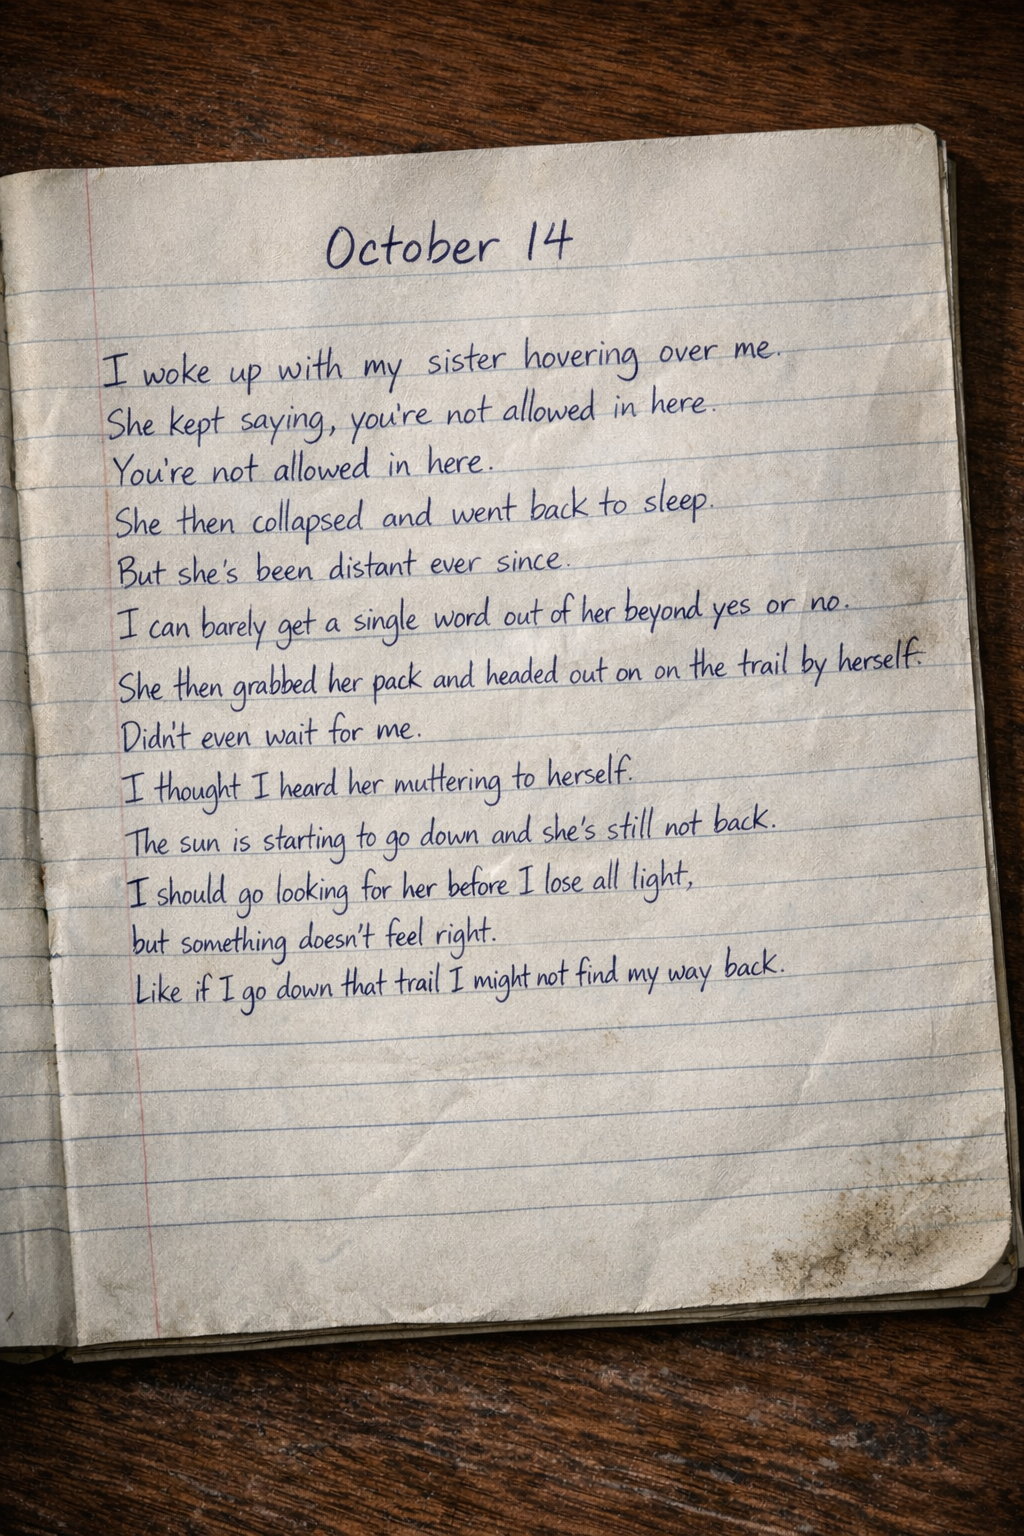 October 14
I woke up with my sister hovering over me.
She kept saying, you're not allowed in here.
You're not allowed in here.
She then collapsed and went back to sleep.
But she's been distant ever since.
I can barely get a single word out of her beyond yes or no.
She then grabbed her pack and headed out on on the trail by herself.
Didn't even wait for me.
I thought I heard her muttering to herself.
The sun is starting to go down and she's still not back.
I should go looking for her before I lose all light,
but something doesn't feel right.
Like if I go down that trail I might not find my way back.